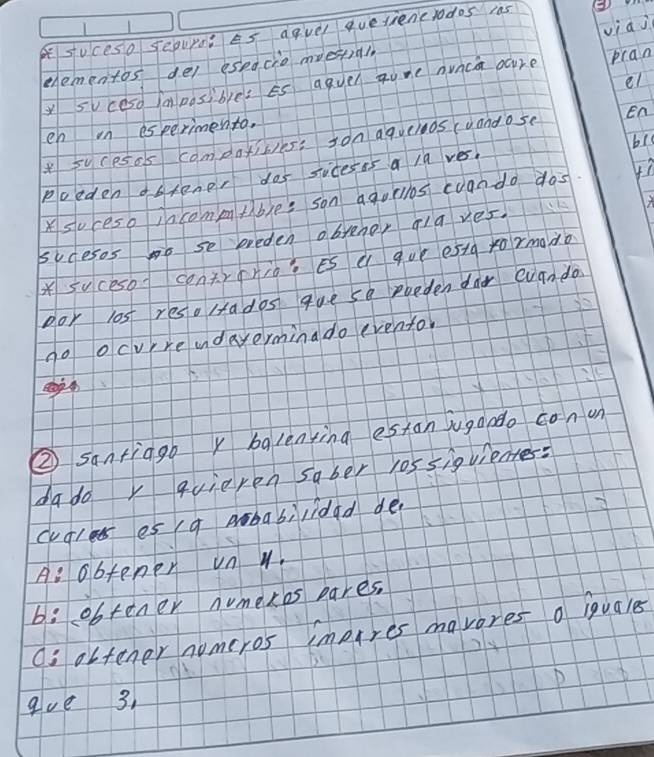 * suceso seguro: Es aquel que tiene todos los
elementos del espacio muestral.
* suceso imposible: Es aquel que nunca ocure
en un esperimento.
* sucesos compatibles: son aquellos cuando se
pueden obtener dos sucesos a la ves.
* suceso incompatible: son aquellos cuando dos
sucesos no se pueden obtener ala ves.
* suceso contrario: Es el que esta formado
por los resoltados que se pueden dar cuando
no ocurre undeterminado evento.
② santiago y balentina estan jugando con un
dado y quieren saber los siguientes:
cual es la probabilidad de.
A: Obtener un 4.
b: obtener numeros pares.
C: obtener numeros impares mayores o iguales
que 3.
③
viaj
plan
el
En